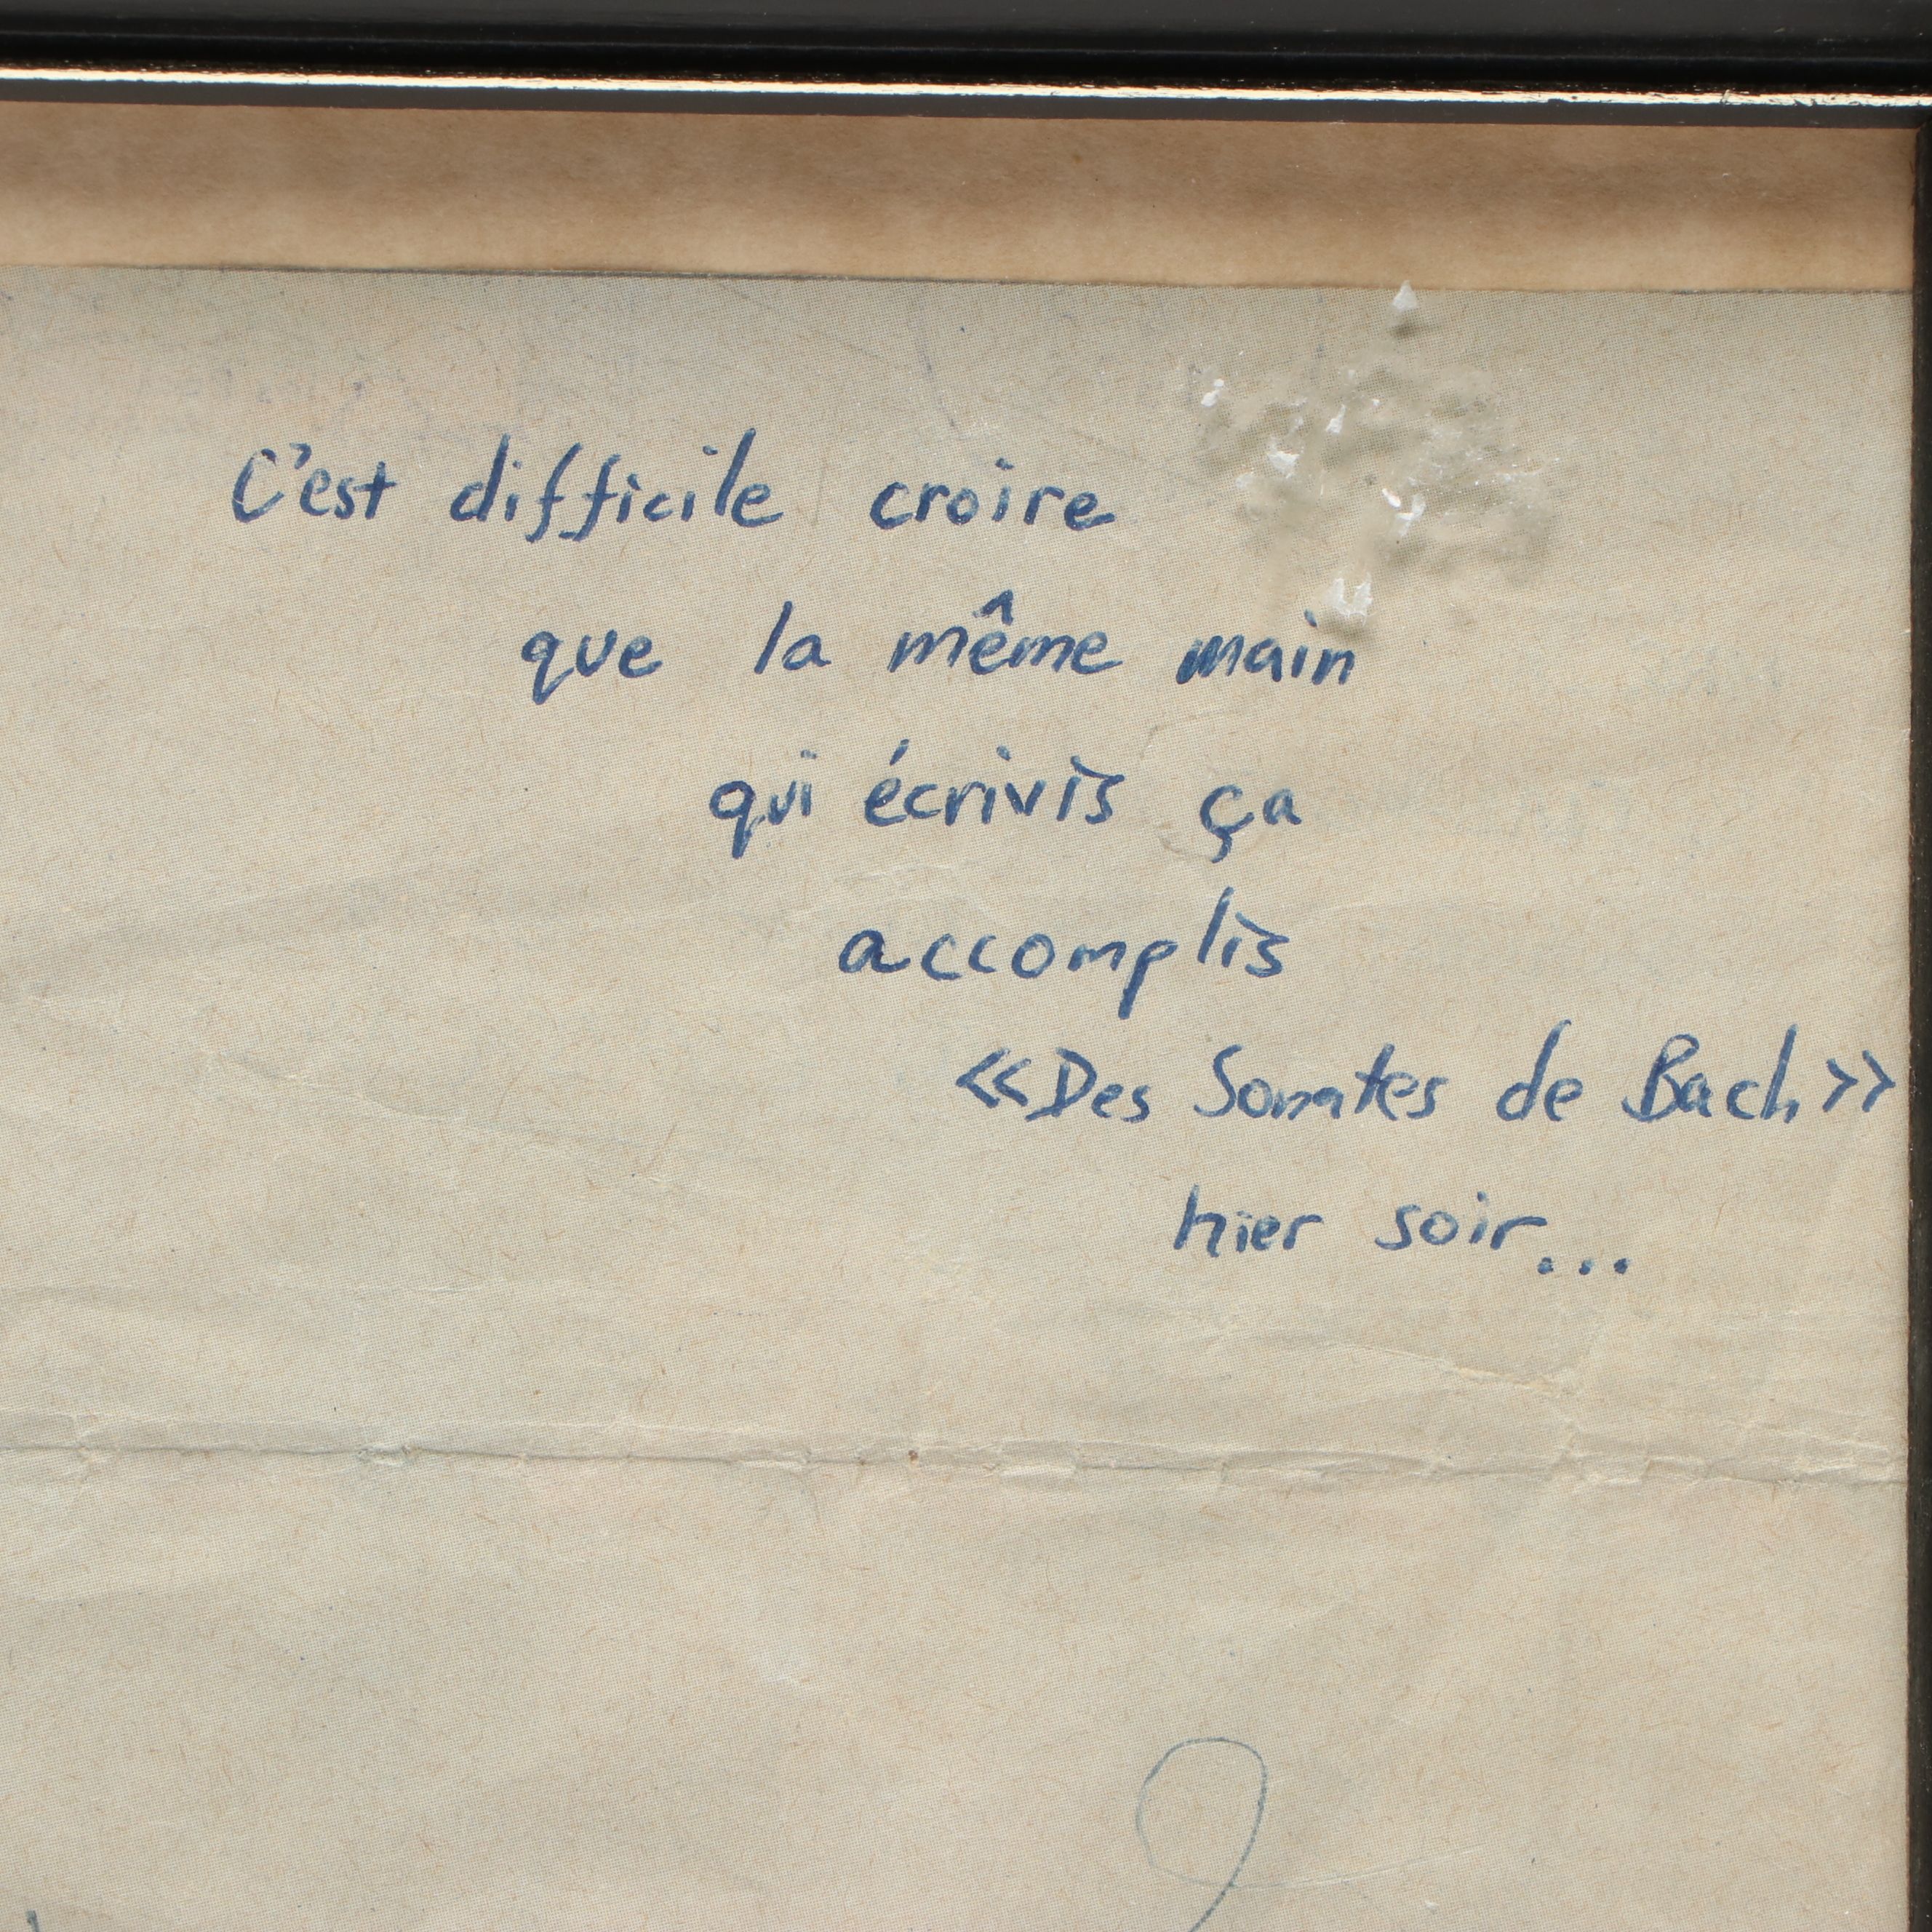 C'est difficile croire
que la même main
qui écrivis ça
accomplis
<<Des Sonates de Bach>>
hier soir...